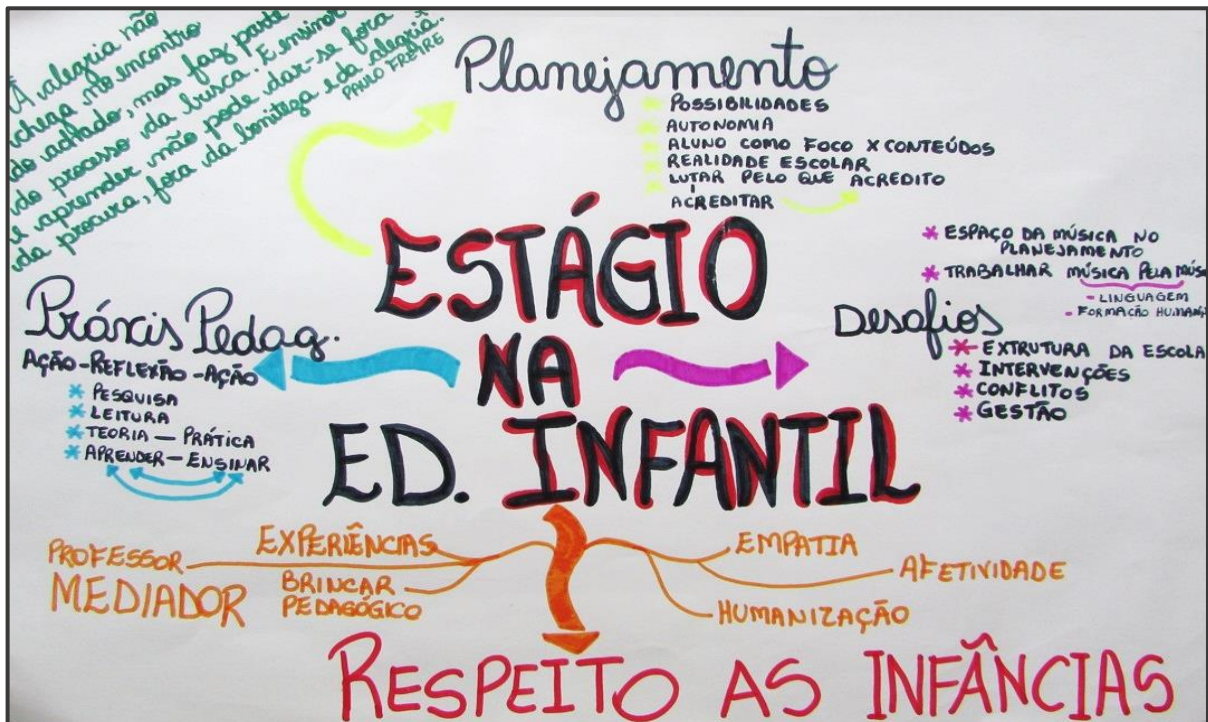 A alegria não
chega no encontro
do achado, mas faz parte
do processo da busca. E ensinar
e aprender não pode dar-se fora
da procura, fora da boniteza e da alegria.
PAULO FREIRE
Planejamento
POSSIBILIDADES
AUTONOMIA
ALUNO COMO FOCO X CONTEÚDOS
REALIDADE ESCOLAR
LUTAR PELO QUE ACREDITO
ACREDITAR
ESTÁGIO
NA
ED. INFANTIL
Práxis Pedag.
AÇÃO-REFLEXÃO-AÇÃO
* PESQUISA
* LEITURA
* TEORIA — PRÁTICA
* APRENDER — ENSINAR
* ESPAÇO DA MÚSICA NO
PLANEJAMENTO
* TRABALHAR MÚSICA PELA MÚS
- LINGUAGEM
- FORMAÇÃO HUMAN
Desafios
* EXTRUTURA DA ESCOLA
* INTERVENÇÕES
* CONFLITOS
* GESTÃO
PROFESSOR
MEDIADOR
EXPERIÊNCIAS
BRINCAR
PEDAGÓGICO
EMPATIA
AFETIVIDADE
HUMANIZAÇÃO
RESPEITO AS INFÂNCIAS